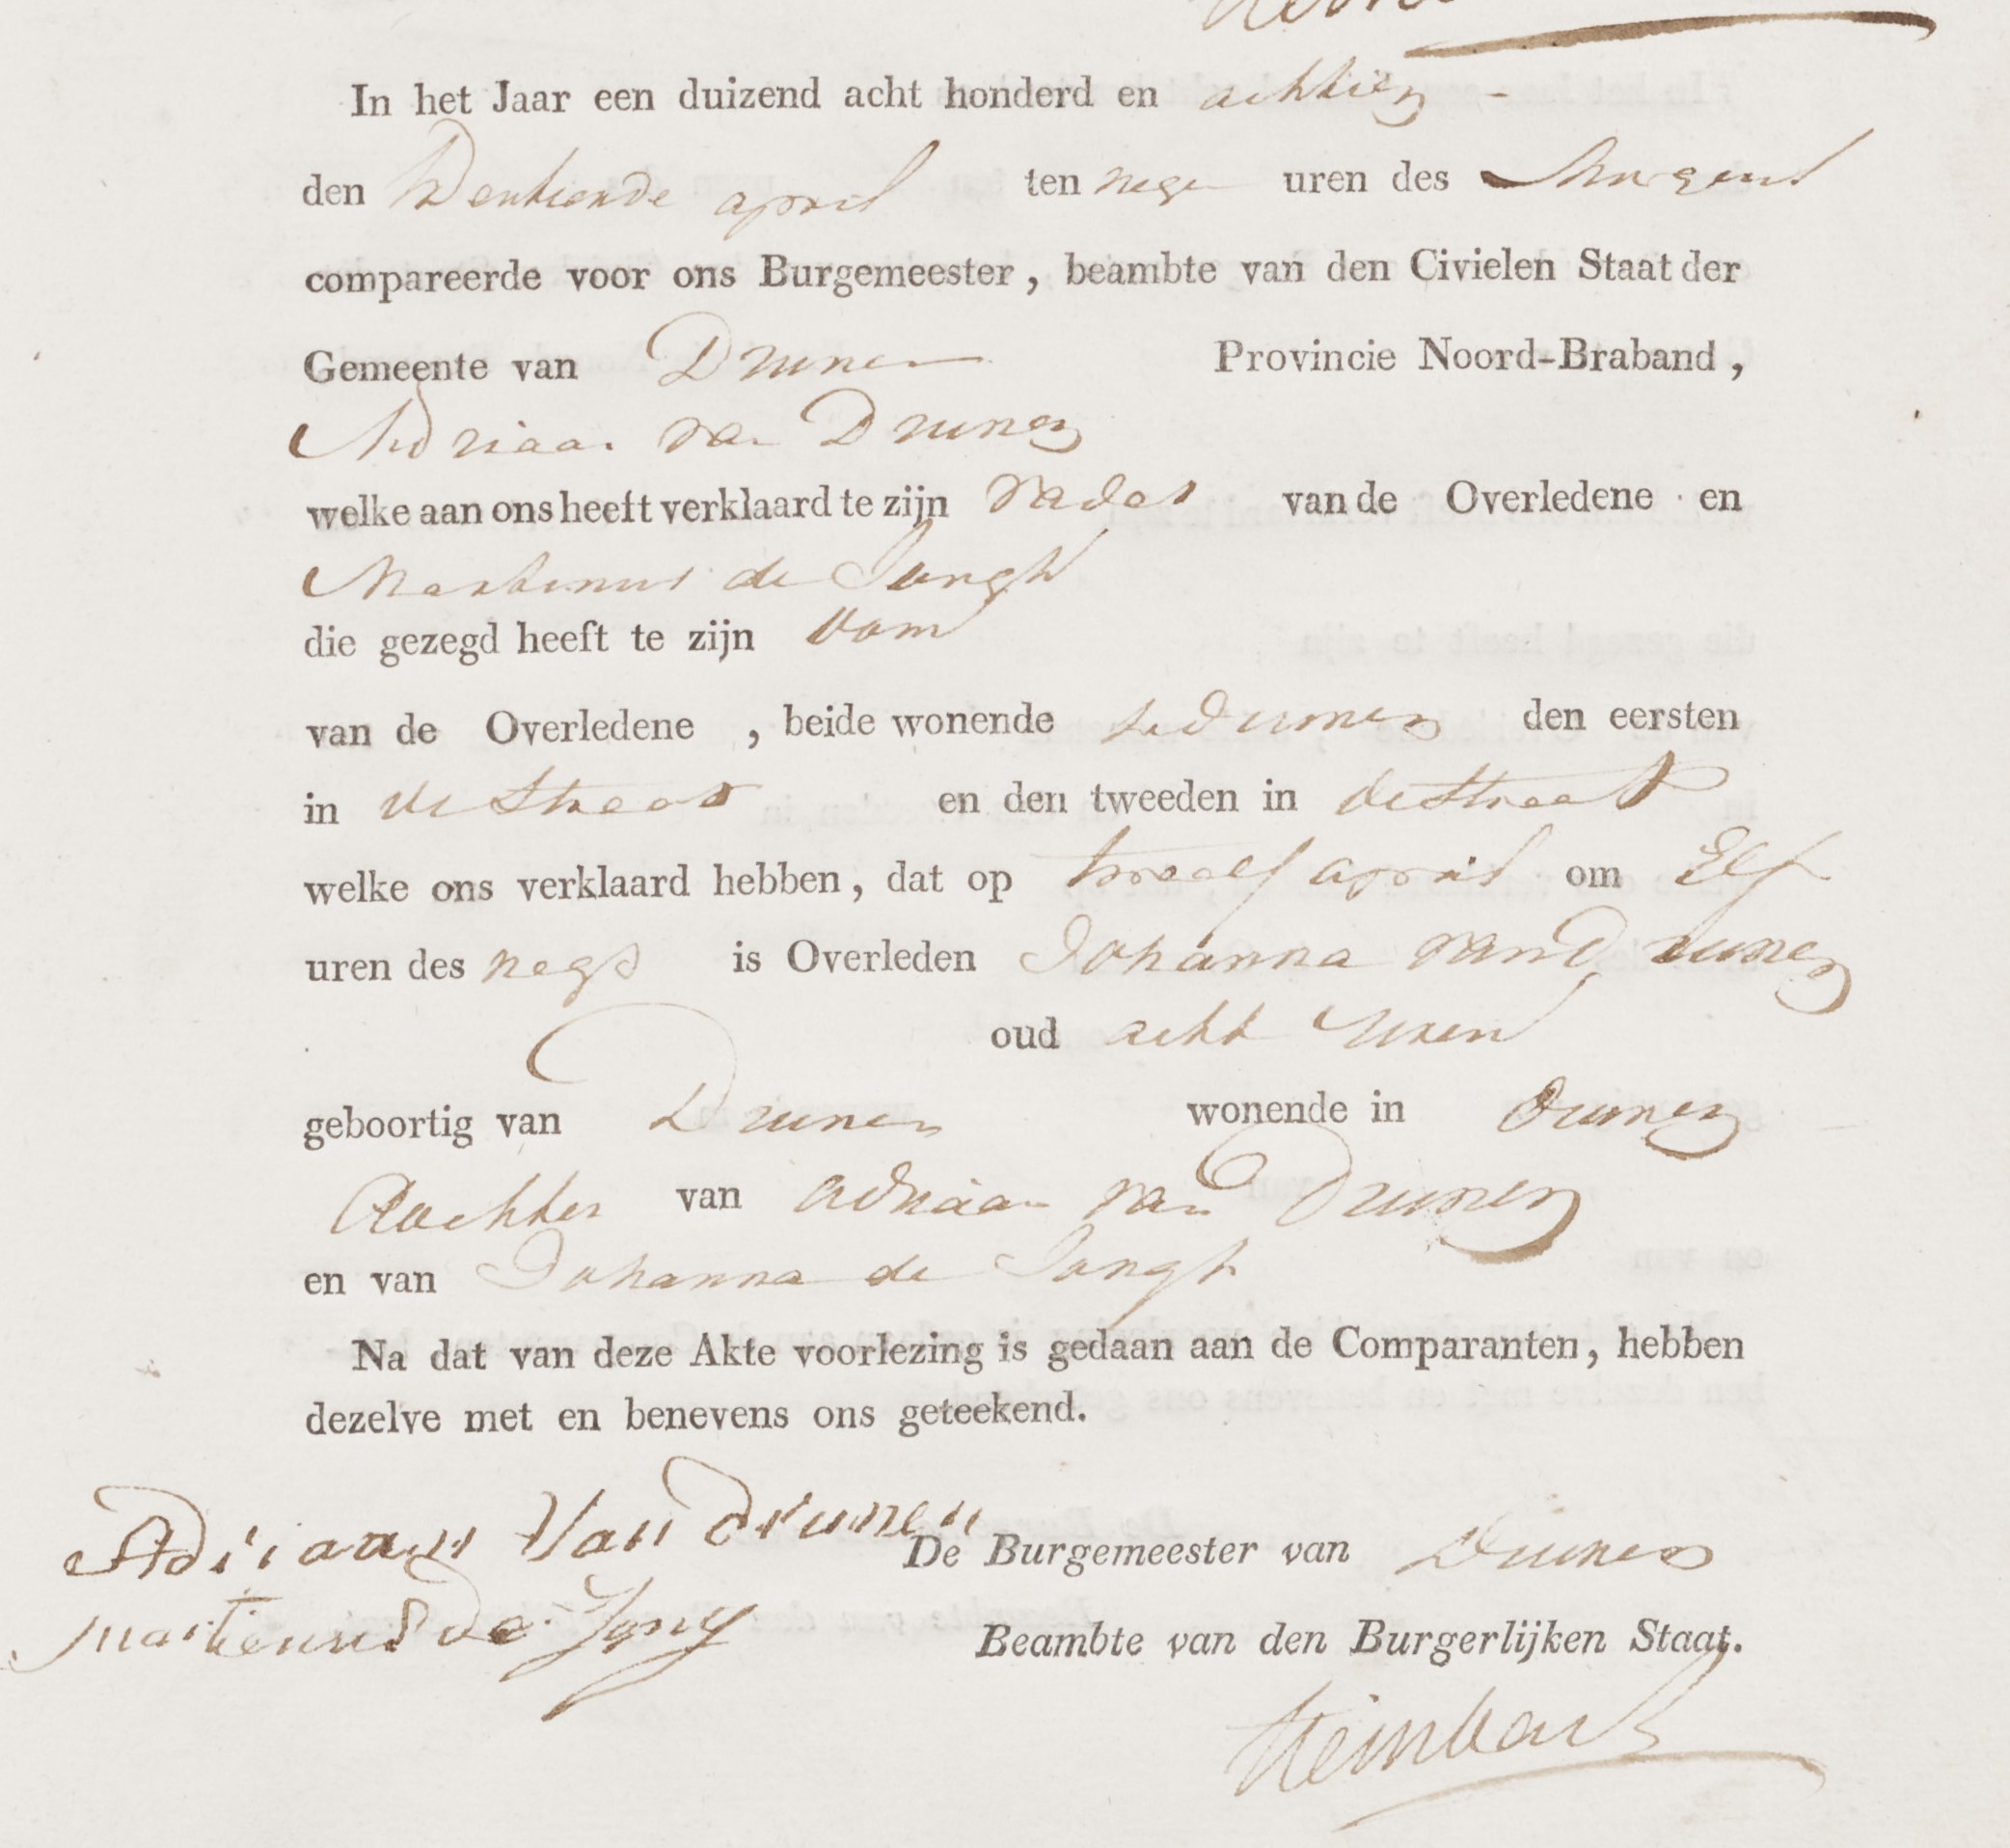 In het Jaar een duizend acht honderd en achttien -
den Dertiende april ten nege uren des Morgens
compareerde voor ons Burgemeester, beambte van den Civielen Staat der
Gemeente van Drunen Provincie Noord-Braband,
Adriaan van Drunen
welke aan ons heeft verklaard te zijn vader van de Overledene en
Martinus de Jongh
die gezegd heeft te zijn oom
van de Overledene, beide wonende te drunen den eersten
in de straat en den tweeden in de straat
welke ons verklaard hebben, dat op twaalf april om Elf
uren des is Overleden Johanna van Drunen
oud acht Uren
geboortig van Drunen wonende in drunen
dochter van adriaan van Drunen
en van Johanna de Jongh
Na dat van deze Akte voorlezing is gedaan aan de Comparanten, hebben
dezelve met en benevens ons geteekend.
Adriaan Van drunen
De Burgemeester van Drunen
martienus de Jong
Beambte van den Burgerlijken Staat.